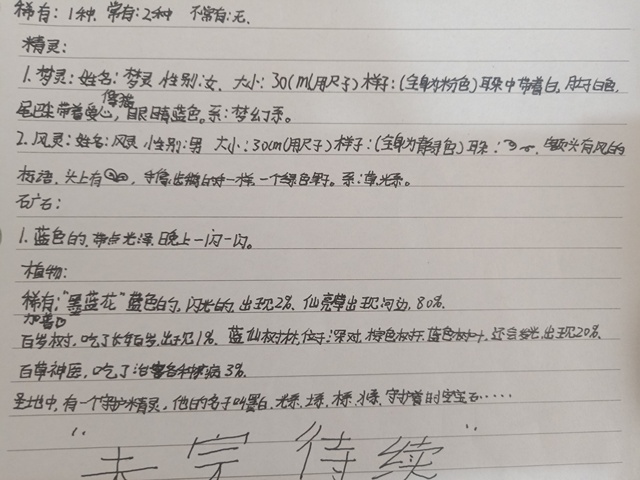 稀有：1种 常有：2种 不常有：无.
精灵：
1.梦灵：姓名：梦灵 性别：女. 大小：30cm(用尺子)样子：(全身为粉色)耳朵中带着白. 肚子白色,
像猫
尾巴带着爱心, 眼睛蓝色。系：梦幻系。
2.风灵：姓名：风灵 性别：男 大小：30cm(用尺子)样子：(全身为青绿色)耳朵：额头有风的
标志. 头上有 一样. 一个绿色果子。系：草,光系。
矿石：
1.蓝色的. 带点光泽. 晚上一闪一闪。
植物：
稀有："墨蓝花" 蓝色的, 闪光的. 出现2%. 仙亮草出现河边, 80%.
百岁树, 吃了长年百岁, 出现1%. 蓝仙树林, 位于：深处. 棕色树干. 蓝色树叶. 还会发光, 出现20%.
百草神医, 吃了治 各种疾病3%.
圣地中, 有一个守护精灵, 他的名子叫 白. 光系. 土系. 木系. 水系. 守护着时空宝石……
"未完待续"